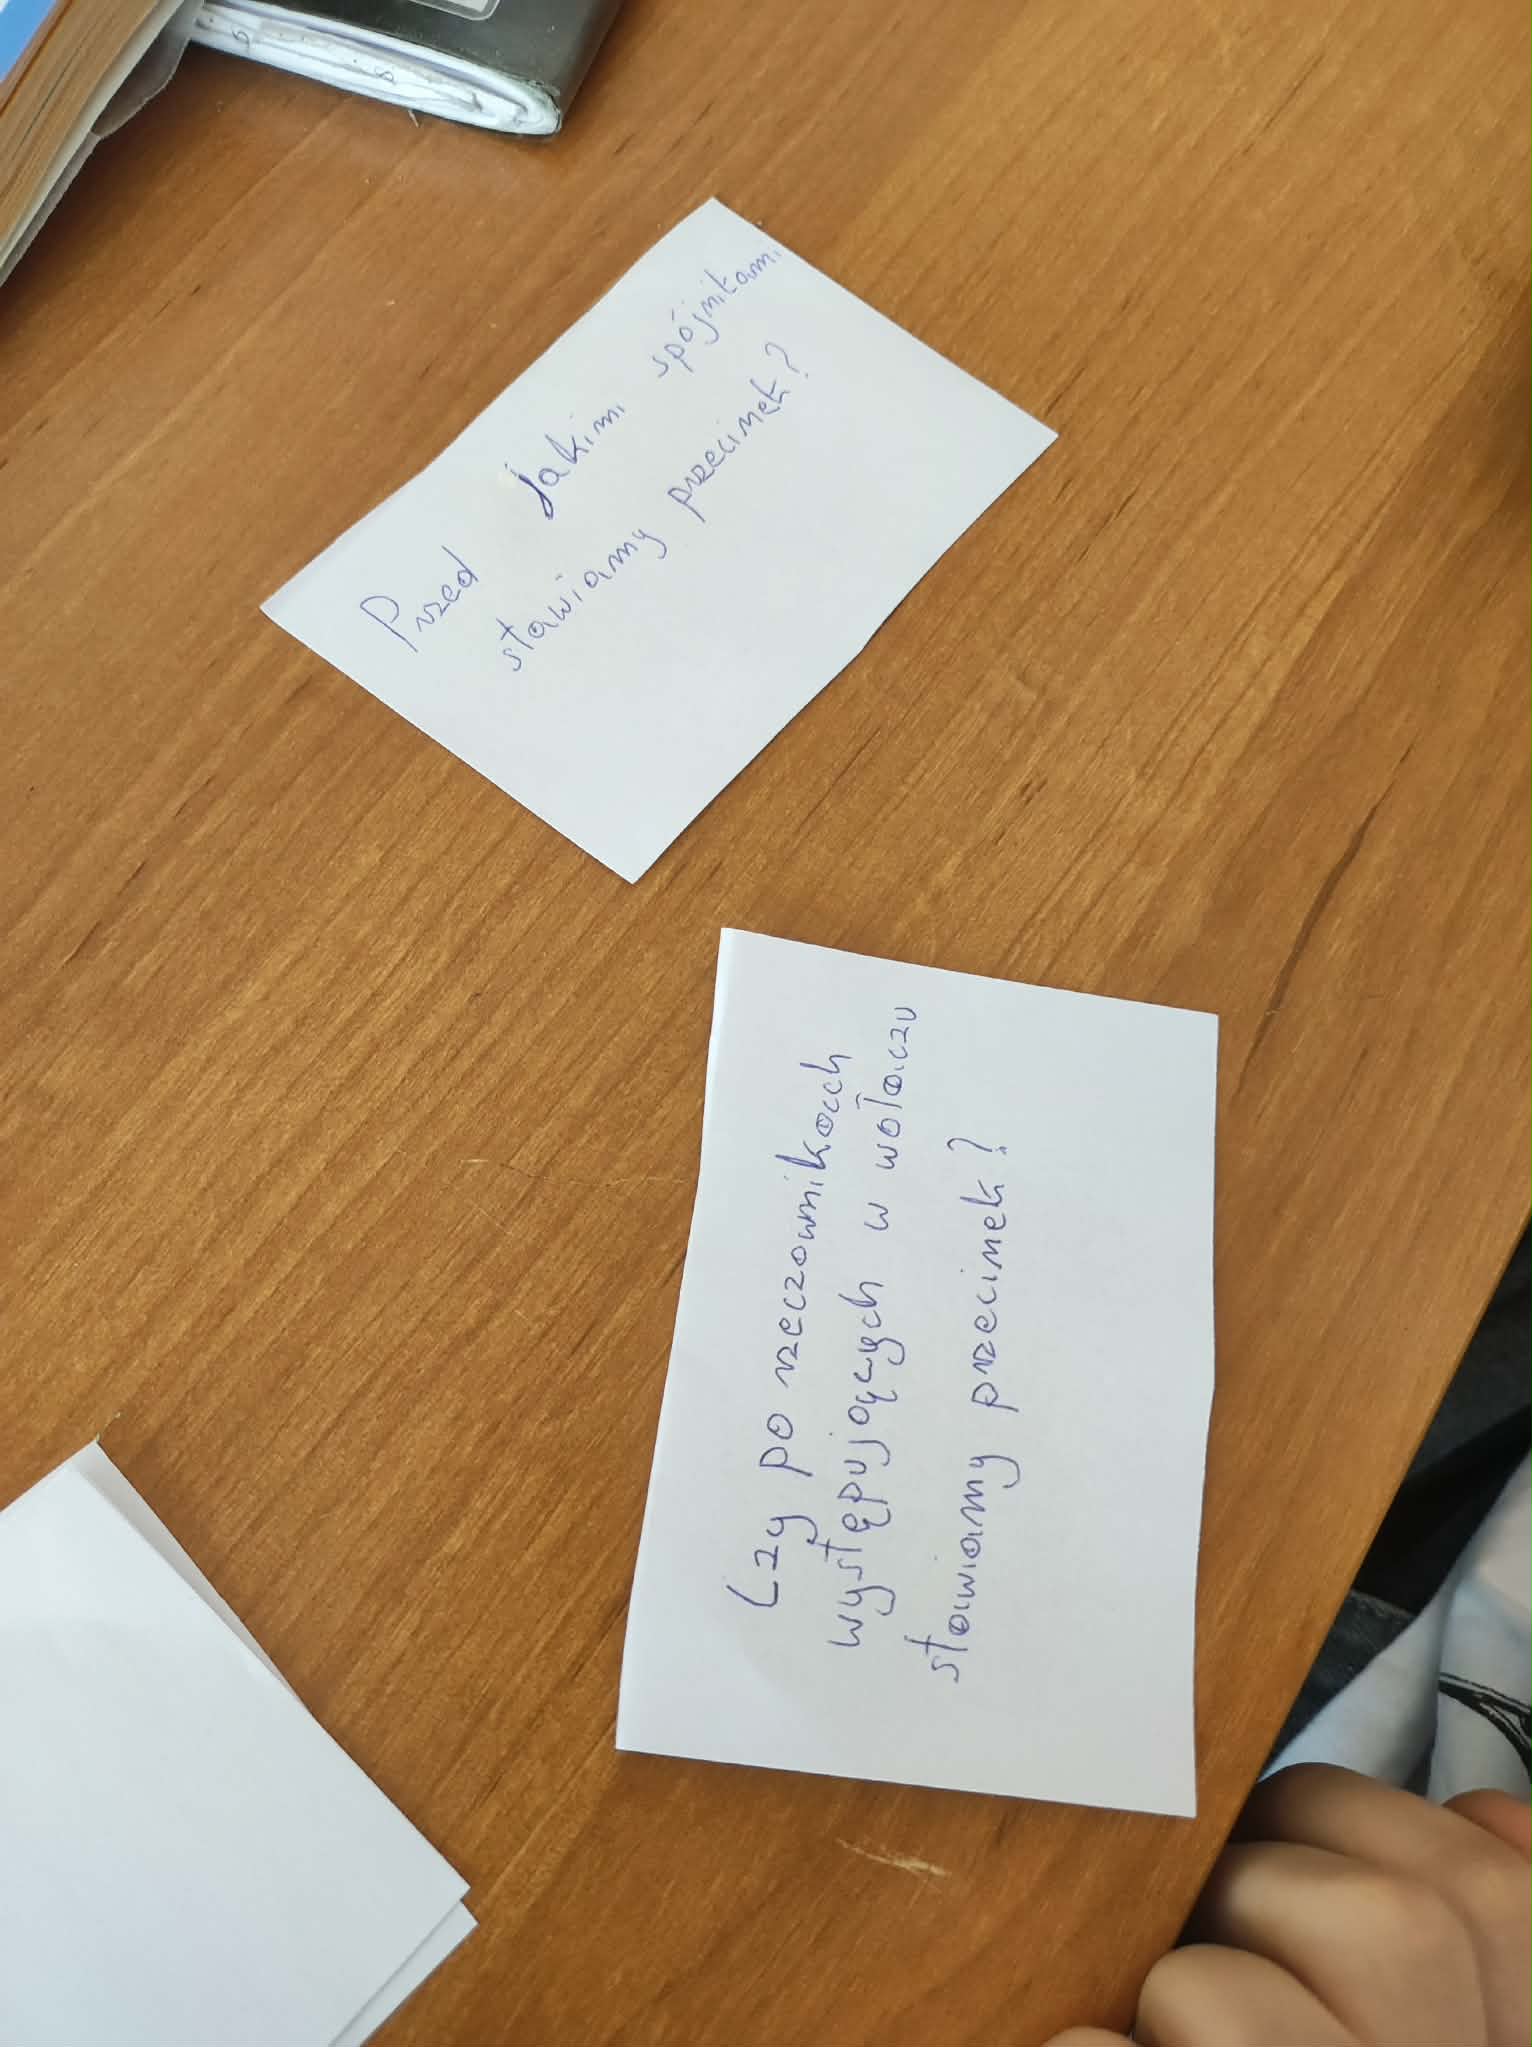 Przed jakimi spójnikami
stawiamy przecinek?
Czy po rzeczownikach
występujących w wołaczu
stawiamy przecinek?